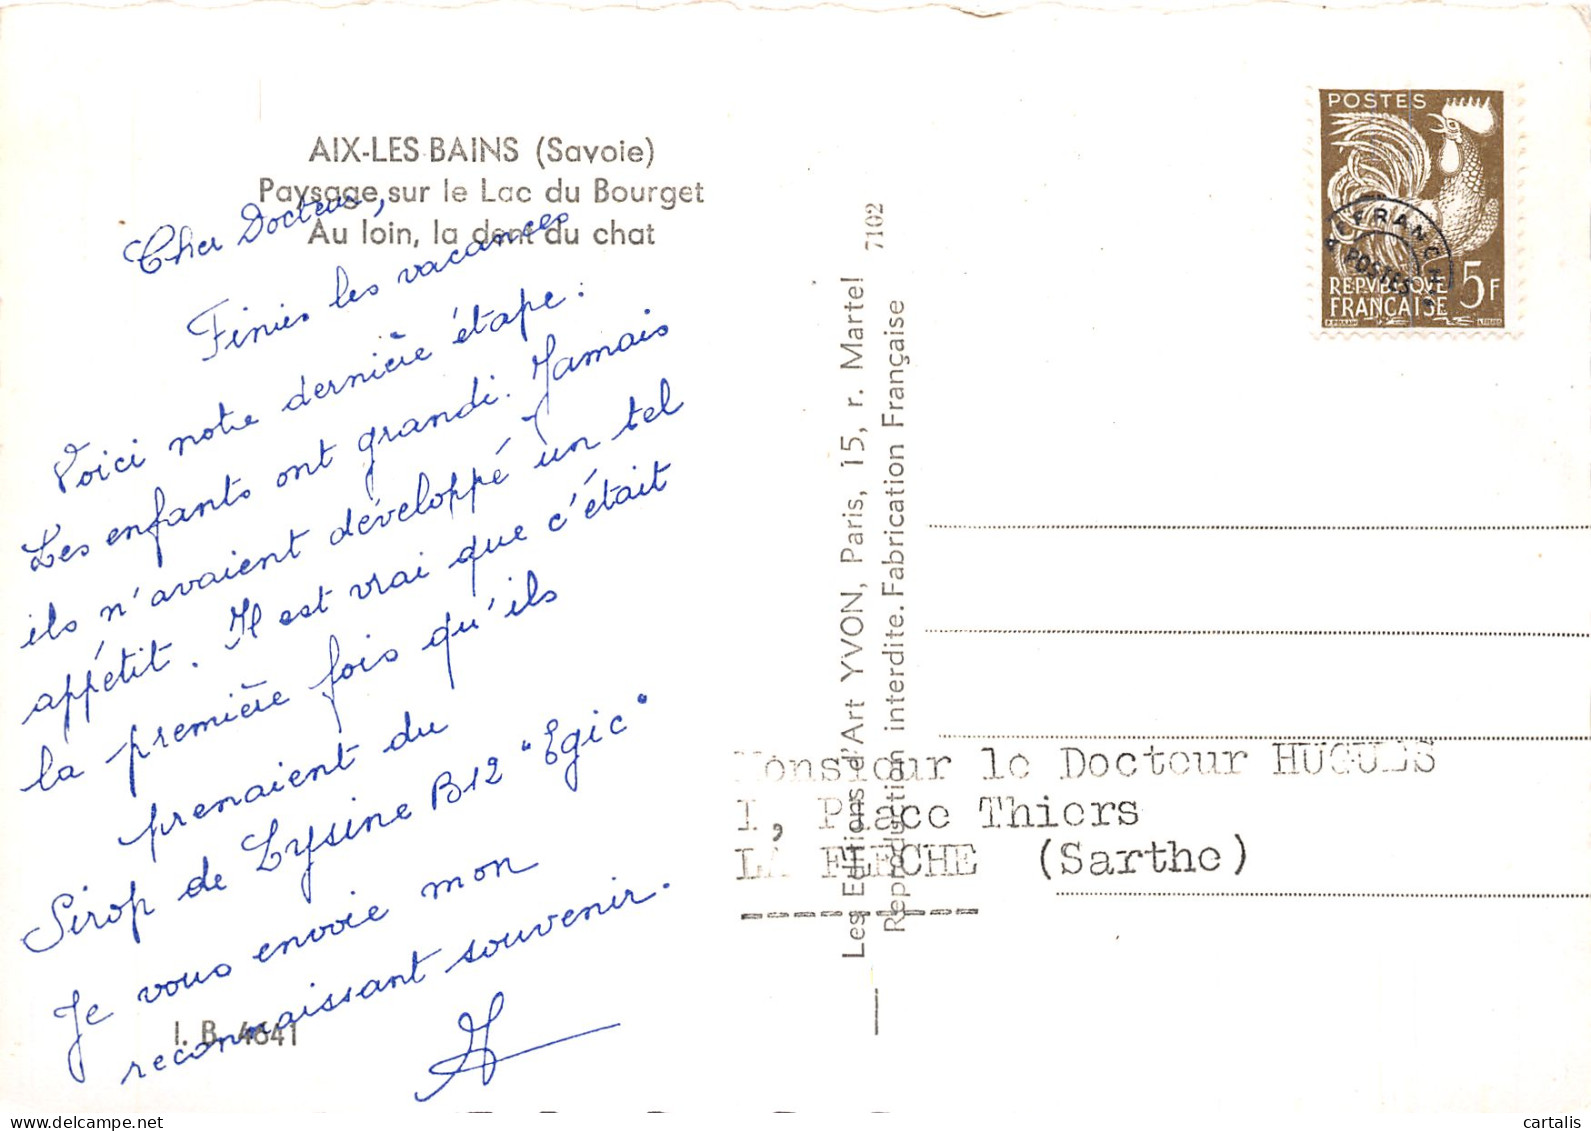 AIX-LES-BAINS (Savoie)
Paysage sur le Lac du Bourget
Au loin, la dent du chat
Cher Docteur,
Finies les vacances
Voici notre dernière étape.
Les enfants ont grandi. Jamais
ils n'avaient développé un tel
appétit. Il est vrai que c'était
la première fois qu'ils
prenaient du
Sirop de Lysine B12 "Egic"
Je vous envoie mon
reconnaissant souvenir.
I. B. 4641
Les Editions d'Art YVON, Paris, 15, r. Martel
Reproduction interdite. Fabrication Française
7102
POSTES
AFFRANCHts
POSTES
REPVBLIQVE
FRANCAISE
5F
Monsieur le Docteur HUGUES
I, Place Thiers
LA FLECHE (Sarthe)
delcampe.net
cartalis